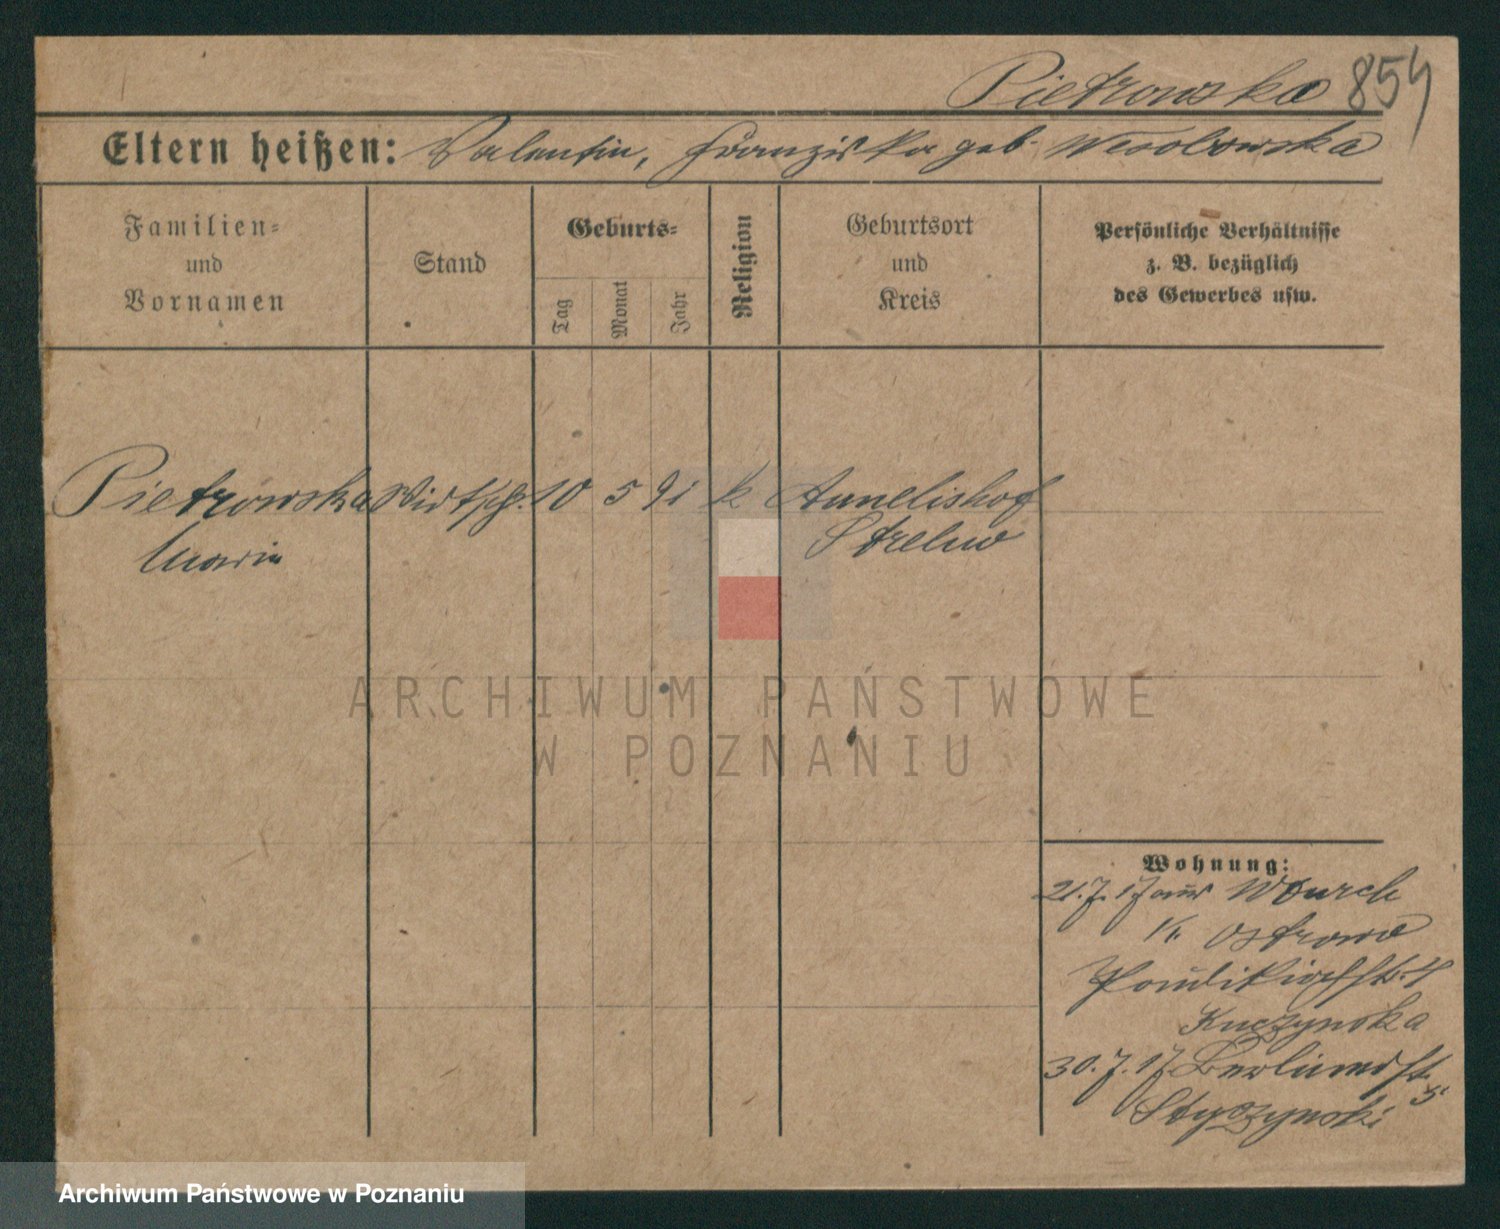 Pietrowska 854
Eltern heißen: Valentin, Franziska geb. Wesolowska
Familien- und Vornamen
Stand
Geburts-
Tag
Monat
Jahr
Religion
Geburtsort und Kreis
Persönliche Verhältnisse
z. B. bezüglich
des Gewerbes usw.
Pietrowska Wirtsch. 10 5 91 k Annelishof
Marie Strelno
ARCHIWUM PAŃSTWOWE
W POZNANIU
Wohnung:
21.7.17 aus
Ostrowo
4
Kuczynska
30.7.17 Berlinerst.
5
Styczynski
Archiwum Państwowe w Poznaniu